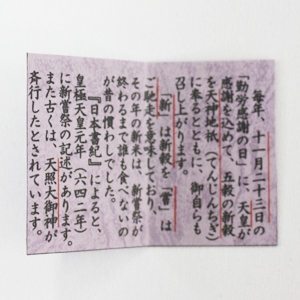 毎年、十一月二十三日の
「勤労感謝の日」に、天皇が
感謝を込めて、五穀の新穀
を天神地祇（てんじんちぎ）
に奉るとともに、御自らも
召し上がります。
「新」は新穀を「嘗」は
ご馳走を意味しており、
その年の新米は、新嘗祭が
終わるまで誰も食べないの
が昔の慣わしでした。
『日本書紀』によると、
皇極天皇元年（六四二年）
に新嘗祭の記述があります。
また古くは、天照大御神が
斎行したとされています。